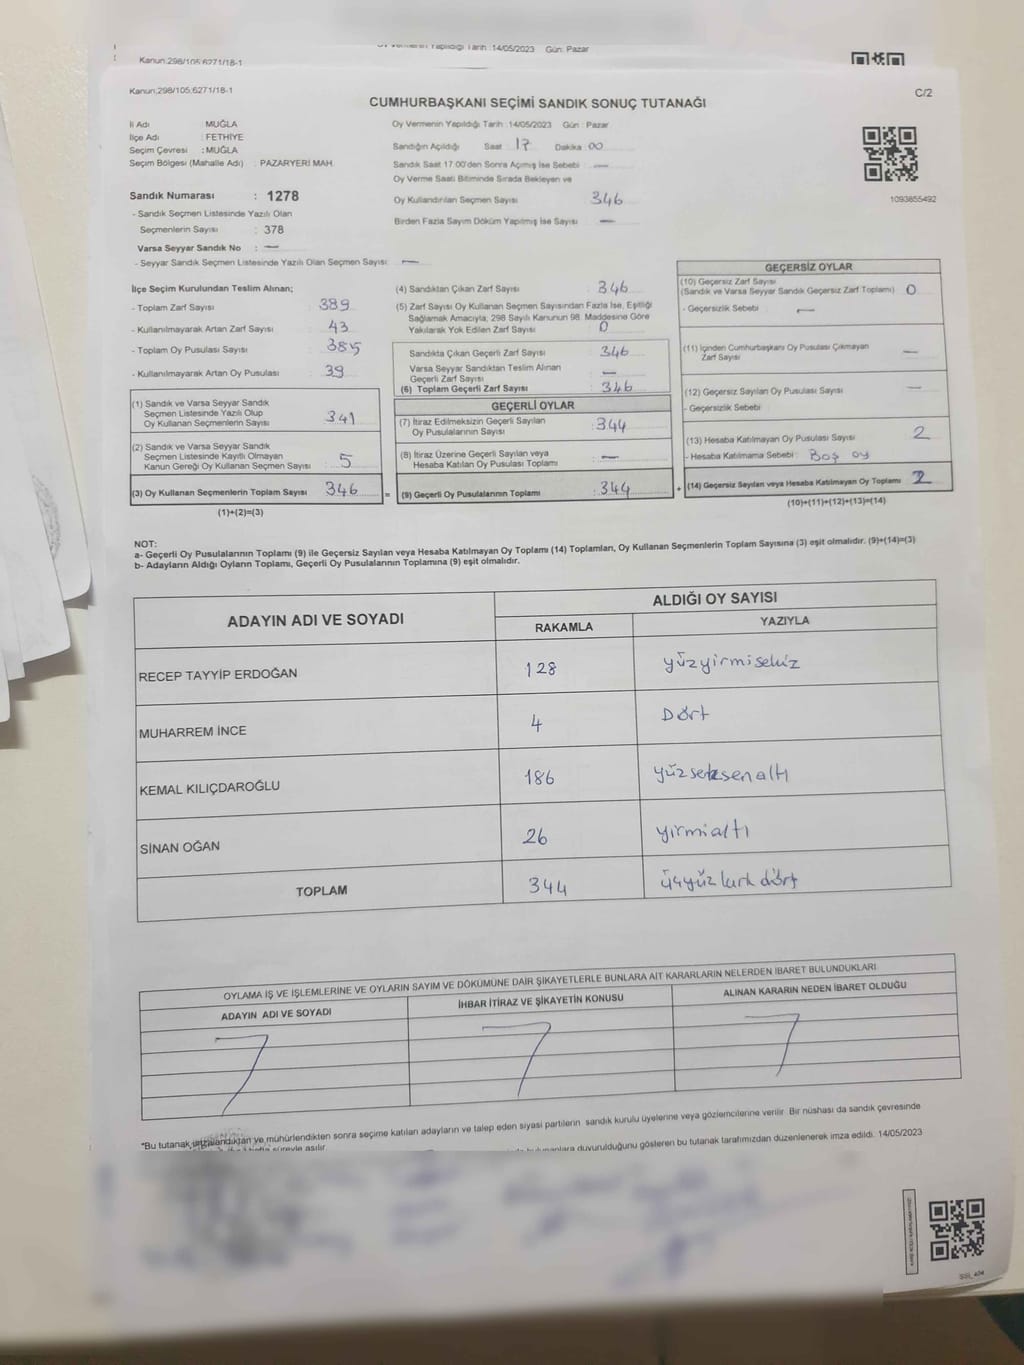 Oy Vermenin Yapıldığı Tarih :14/05/2023 Gün: Pazar
Kanun:298/105;6271/18-1
Kanun:298/105;6271/18-1
C/2
CUMHURBAŞKANI SEÇİMİ SANDIK SONUÇ TUTANAĞI
İli Adı : MUĞLA
İlçe Adı : FETHİYE
Seçim Çevresi : MUĞLA
Seçim Bölgesi (Mahalle Adı) : PAZARYERİ MAH.
Oy Vermenin Yapıldığı Tarih :14/05/2023 Gün : Pazar
Sandığın Açıldığı Saat 17 Dakika 00
Sandık Saat 17:00'den Sonra Açılmış İse Sebebi : —
Oy Verme Saati Bitiminde Sırada Bekleyen ve
Oy Kullandırılan Seçmen Sayısı 346
Birden Fazla Sayım Döküm Yapılmış İse Sayısı —
1093855492
Sandık Numarası : 1278
- Sandık Seçmen Listesinde Yazılı Olan
Seçmenlerin Sayısı : 378
Varsa Seyyar Sandık No : —
- Seyyar Sandık Seçmen Listesinde Yazılı Olan Seçmen Sayısı: —
İlçe Seçim Kurulundan Teslim Alınan;
- Toplam Zarf Sayısı : 389
- Kullanılmayarak Artan Zarf Sayısı : 43
- Toplam Oy Pusulası Sayısı : 385
- Kullanılmayarak Artan Oy Pusulası : 39
(1) Sandık ve Varsa Seyyar Sandık
Seçmen Listesinde Yazılı Olup
Oy Kullanan Seçmenlerin Sayısı : 341
(2) Sandık ve Varsa Seyyar Sandık
Seçmen Listesinde Kayıtlı Olmayan
Kanun Gereği Oy Kullanan Seçmen Sayısı : 5
(3) Oy Kullanan Seçmenlerin Toplam Sayısı : 346
(1)+(2)=(3)
(4) Sandıktan Çıkan Zarf Sayısı : 346
(5) Zarf Sayısı Oy Kullanan Seçmen Sayısından Fazla İse, Eşitliği
Sağlamak Amacıyla; 298 Sayılı Kanunun 98. Maddesine Göre
Yakılarak Yok Edilen Zarf Sayısı : 0
Sandıkta Çıkan Geçerli Zarf Sayısı : 346
Varsa Seyyar Sandıktan Teslim Alınan
Geçerli Zarf Sayısı : —
(6) Toplam Geçerli Zarf Sayısı : 346
GEÇERLİ OYLAR
(7) İtiraz Edilmeksizin Geçerli Sayılan
Oy Pusulalarının Sayısı : 344
(8) İtiraz Üzerine Geçerli Sayılan veya
Hesaba Katılan Oy Pusulası Toplamı : —
= (9) Geçerli Oy Pusulalarının Toplamı : 344
GEÇERSİZ OYLAR
(10) Geçersiz Zarf Sayısı
(Sandık ve Varsa Seyyar Sandık Geçersiz Zarf Toplamı) : 0
- Geçersizlik Sebebi : —
(11) İçinden Cumhurbaşkanı Oy Pusulası Çıkmayan
Zarf Sayısı : —
(12) Geçersiz Sayılan Oy Pusulası Sayısı : —
- Geçersizlik Sebebi :
(13) Hesaba Katılmayan Oy Pusulası Sayısı : 2
- Hesaba Katılmama Sebebi : Boş oy
+ (14) Geçersiz Sayılan veya Hesaba Katılmayan Oy Toplamı : 2
(10)+(11)+(12)+(13)=(14)
NOT:
a- Geçerli Oy Pusulalarının Toplamı (9) ile Geçersiz Sayılan veya Hesaba Katılmayan Oy Toplamı (14) Toplamları, Oy Kullanan Seçmenlerin Toplam Sayısına (3) eşit olmalıdır. (9)+(14)=(3)
b- Adayların Aldığı Oyların Toplamı, Geçerli Oy Pusulalarının Toplamına (9) eşit olmalıdır.
ADAYIN ADI VE SOYADI ALDIĞI OY SAYISI
RAKAMLA YAZIYLA
RECEP TAYYİP ERDOĞAN 128 yüzyirmisekiz
MUHARREM İNCE 4 Dört
KEMAL KILIÇDAROĞLU 186 yüzseksenaltı
SİNAN OĞAN 26 yirmialtı
TOPLAM 344 üçyüzkırkdört
OYLAMA İŞ VE İŞLEMLERİNE VE OYLARIN SAYIM VE DÖKÜMÜNE DAİR ŞİKAYETLERLE BUNLARA AİT KARARLARIN NELERDEN İBARET BULUNDUKLARI
ADAYIN ADI VE SOYADI İHBAR İTİRAZ VE ŞİKAYETİN KONUSU ALINAN KARARIN NEDEN İBARET OLDUĞU
*Bu tutanak imzalandıktan ve mühürlendikten sonra seçime katılan adayların ve talep eden siyasi partilerin sandık kurulu üyelerine veya gözlemcilerine verilir. Bir nüshası da sandık çevresinde
süreyle asılır.
duyurulduğunu gösteren bu tutanak tarafımızdan düzenlenerek imza edildi. 14/05/2023